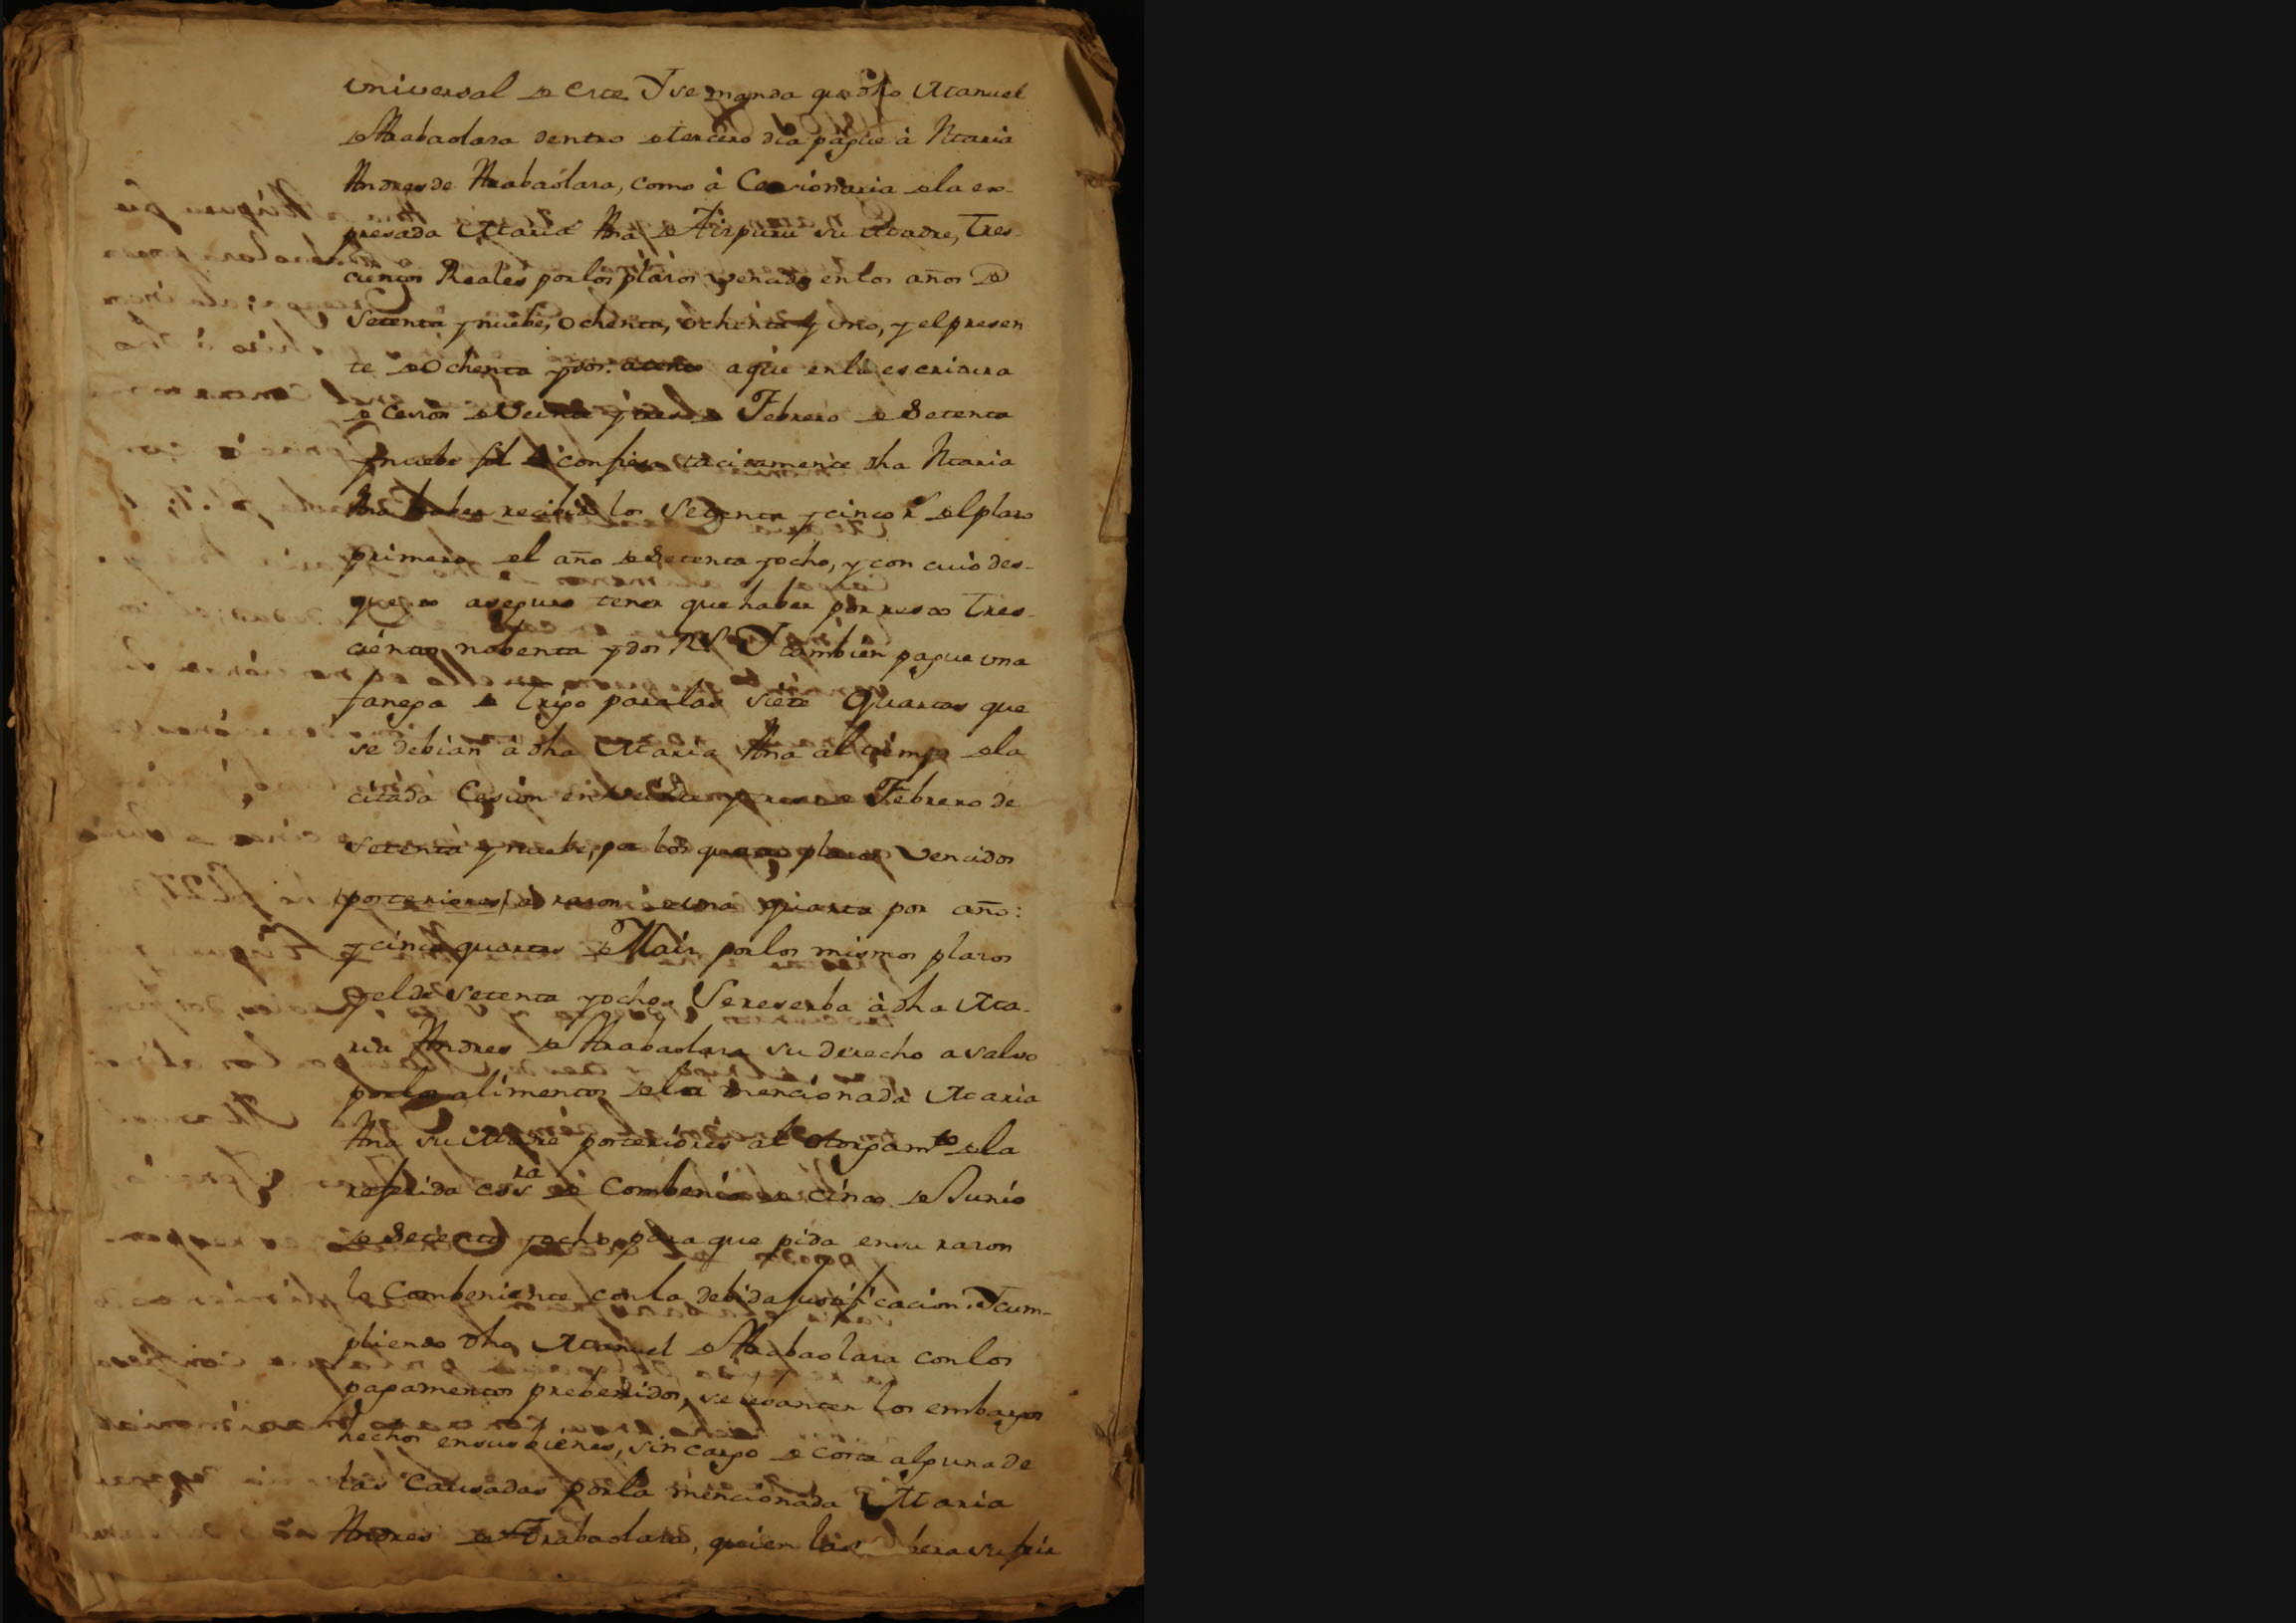 universal de este. Y se manda que dho Manuel
de Arabaolara dentro de tercero dia pague à Maria
Andres de Arabaolara, como à Cesionaria de la ex-
presada Maria Ana de Aizpuru su Madre, tres-
cientos Reales por los plazos vencidos en los años de
setenta y nuebe, ochenta, ochenta y uno, y el presen
te de ochenta y dos: atento a que en la escritura
de cesion de Veinte y tres de Febrero de Setenta
y nuebe fol confiesa tacitamente dha Maria
Ana haber recibido los Setenta y cinco r.s del plazo
primero del año de Setenta y ocho, y con cuio des-
quento aseguro tener que haber por resto tres-
cientos nobenta y dos R.s Y tambien pague una
fanega de Trigo para las siete quartas que
se debian à dha Maria Ana al tiempo de la
citada Cesion en veinte y tres de Febrero de
setenta y nuebe, por los quatro plazos vencidos
posteriores, à razon de una quarta por año:
y cinco quartas de Maiz por los mismos plazos
y el de setenta y ocho. Se reserba à dha Ma-
ria Andres de Arabaolara su derecho a salvo
por los alimentos de la mencionada Maria
Ana su Madre posteriores al otorgam.to de la
referida ess.ra de Combenio de cinco de Junio
de Setenta y ocho, para que pida en su razon
lo Combeniente con la debida justificacion. Y cum-
pliendo dho Manuel de Arabaolara con los
pagamentos prebenidos, se lebanten los embargos
hechos en sus bienes, sin cargo de costa alguna de
las Causadas por la mencionada Maria
Andres de Arabaolara, quien las bera sufrir